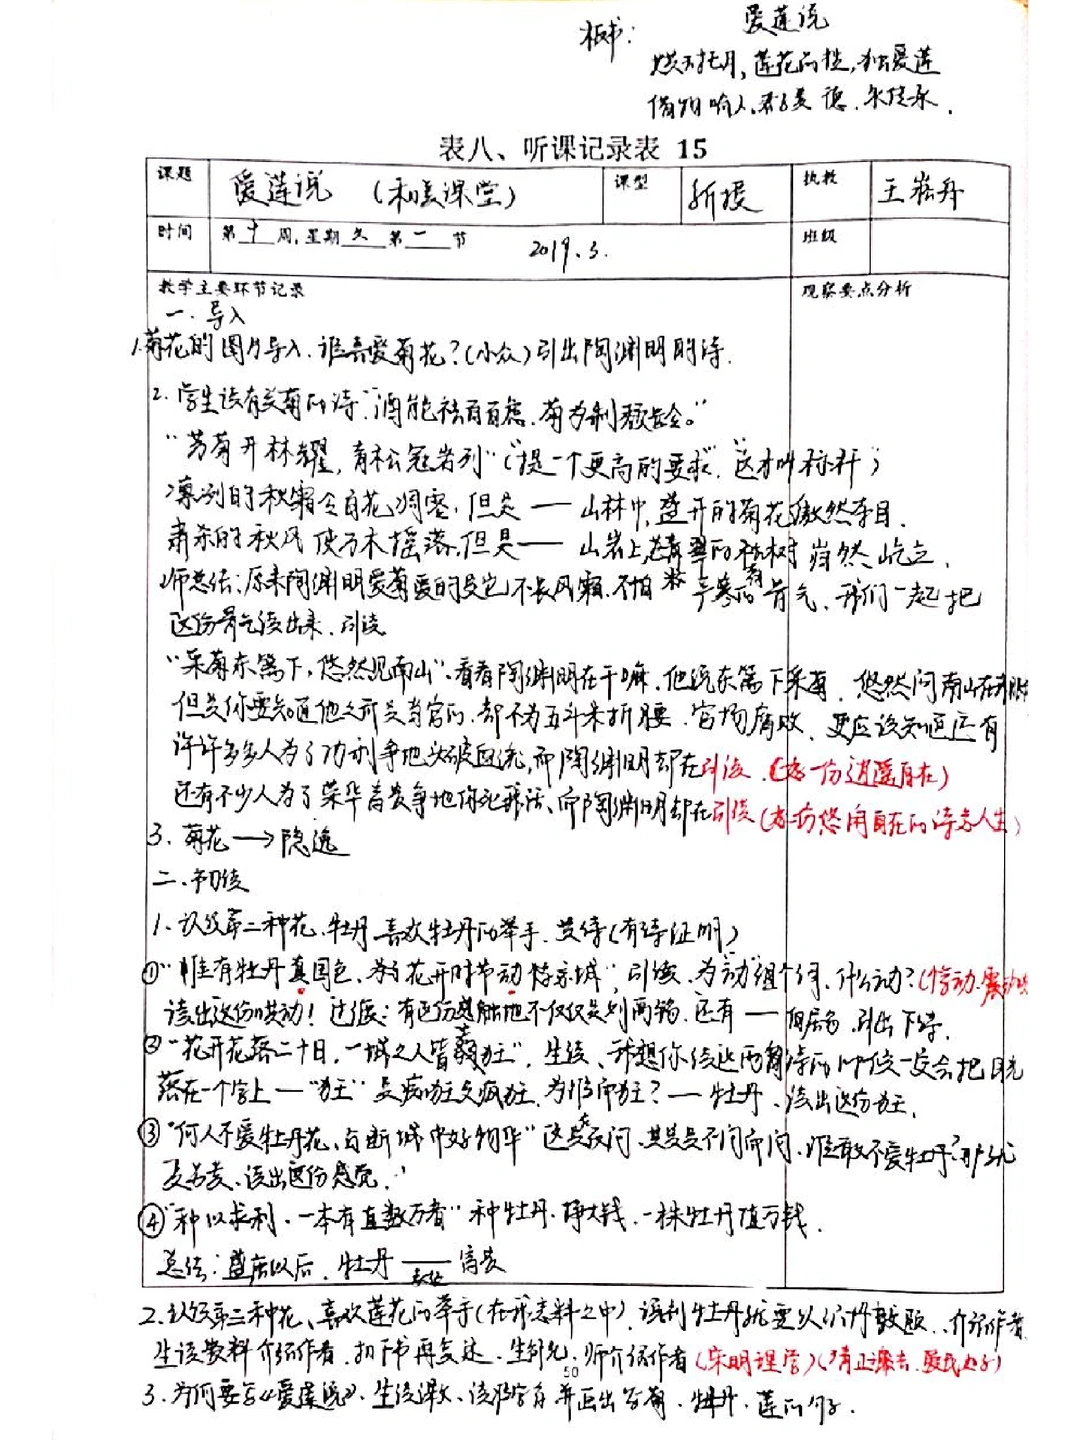 板书: 爱莲说
莲花的性,独爱莲
借物喻人,君子美德.
表八、听课记录表 15
课题 爱莲说 (和美课堂) 课型 新授 执教 王崧舟
时间 第十周,星期 第一节 2019.3. 班级
教学主要环节记录 观察要点分析
一.导入
1.菊花的图片导入.谁喜爱菊花?(小众)引出陶渊明的诗.
2.学生读有关菊的诗:"酒能祛百虑.菊为制颓龄。"
"芳菊开林耀,青松冠岩列"("提一个更高的要求","这才叫标杆")
凛冽的秋霜令百花凋零,但是——山林中,盛开的菊花傲然夺目.
肃杀的秋风使万木摇落,但是——山岩上,苍翠的松树岿然屹立.
师总结:原来陶渊明爱菊爱的是它不畏风霜.不怕 寒的骨气.我们一起把
这份骨气读出来.引读
"采菊东篱下,悠然见南山".看看陶渊明在干嘛.他说东篱下采菊.悠然问南山在
但是你要知道他之前是当官的.却不为五斗米折腰.官场腐败.更应该知道还有
许许多多人为了功利争地头破血流,而陶渊明却在引读.(好一份逍遥自在)
还有不少人为了荣华富贵争地你死我活、而陶渊明却在引读(好一份悠闲自在的诗意人生)
3.菊花→隐逸
二.初读
1.认级第二种花.牡丹 喜欢牡丹的举手.背诗(有诗证明)
①"惟有牡丹真国色.花开时节动京城",引读.为"动"组个词.什么动?(惊动.震动
读出这份哄动!过渡:有这份感触地不仅仅是刘禹锡.还有——白居易.引出下诗.
②"花开花落二十日.一城之人皆若狂".生读、我想你读这两句诗的时候一定会把目光
落在一个字上——"狂"是痴狂是疯狂.为谁而狂?——牡丹.读出这份狂.
③"何人不爱牡丹花、占断城中好物华"这是反问.其实是不问而问.谁敢不爱牡丹?
读出这份感觉."
④"种以求利.一本有直数万者"种牡丹.挣大钱.一株牡丹值万钱.
总结:盛唐以后.牡丹——富贵
2.认级第三种花、喜欢莲花的举手(在我意料之中).谈到牡丹就要 介绍作者
生读资料介绍作者.扣下书再复述.生补充.师介绍作者(宋明理学)
50
3.为何要写《爱莲说》.生读课文、读 并画出写菊.牡丹.莲的句子.